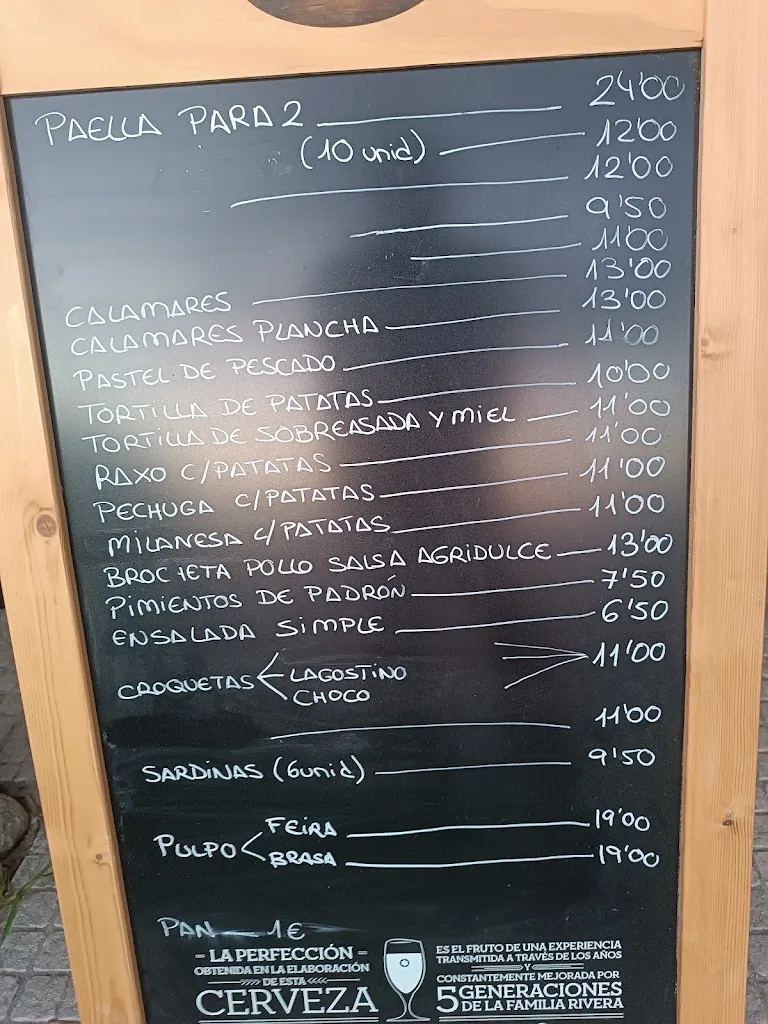 PAELLA PARA 2 24'00
(10 unid) 12'00
12'00
9'50
11'00
13'00
CALAMARES 13'00
CALAMARES PLANCHA 11'00
PASTEL DE PESCADO 10'00
TORTILLA DE PATATAS 11'00
TORTILLA DE SOBREASADA Y MIEL 11'00
RAXO C/PATATAS 11'00
PECHUGA C/PATATAS 11'00
MILANESA C/PATATAS
BROCHETA POLLO SALSA AGRIDULCE 13'00
PIMIENTOS DE PADRÓN 7'50
ENSALADA SIMPLE 6'50
CROQUETAS LAGOSTINO 11'00
CHOCO
11'00
SARDINAS (6unid) 9'50
PULPO FEIRA 19'00
BRASA 19'00
PAN 1€
- LA PERFECCIÓN -
OBTENIDA EN LA ELABORACIÓN
DE ESTA
CERVEZA
ES EL FRUTO DE UNA EXPERIENCIA
TRANSMITIDA A TRAVÉS DE LOS AÑOS
Y
CONSTANTEMENTE MEJORADA POR
5 GENERACIONES
DE LA FAMILIA RIVERA